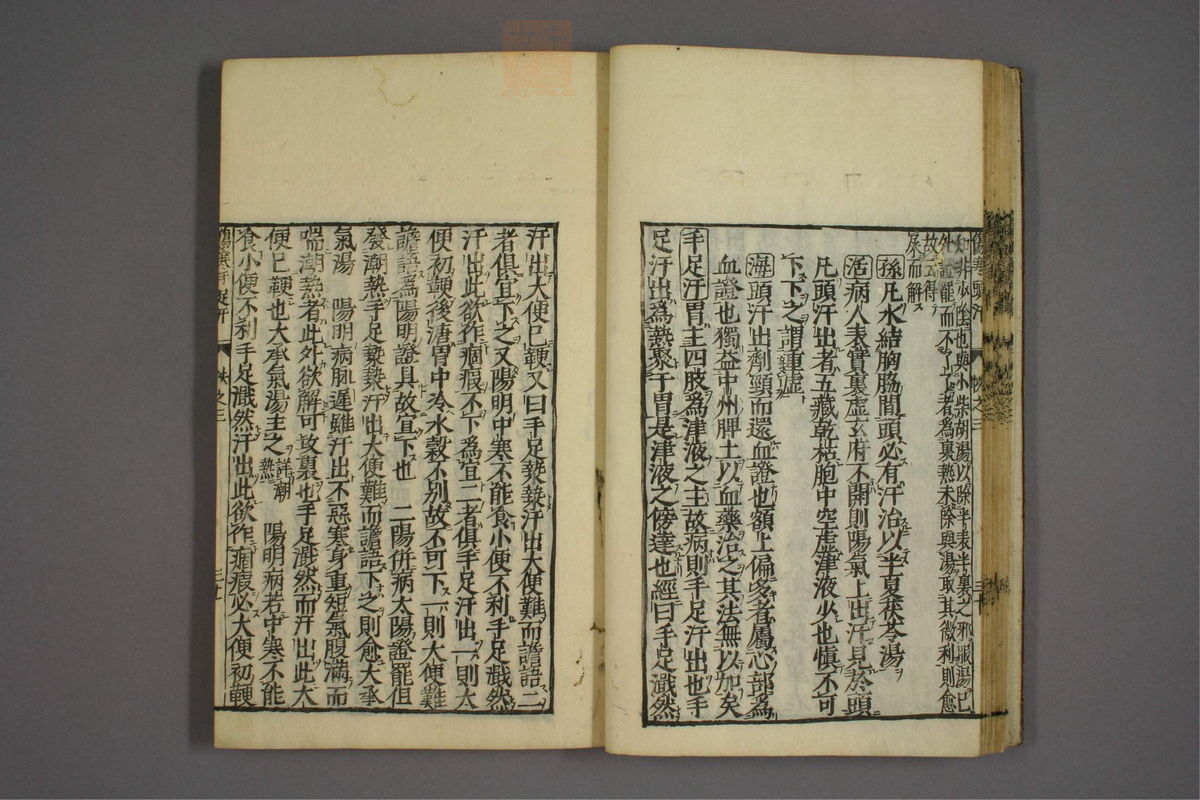 知非少陰也與小柴胡湯以除半表半裏之邪服湯已
外證罷而不了了者為裏熱未除與湯取其微利則愈
故云得
屎而解
孫凡水結胸脇間頭必有汗治以半夏茯苓湯
活病人表實裏虛玄府不開則陽氣上出汗見於頭
凡頭汗出者五藏乾枯胞中空虛津液少也慎不可
下下之謂重虛
海頭汗出劑頸而還血證也額上偏多者屬心部為
血證也獨益中州脾土以血藥治之其法無以加矣
手足汗胃主四肢為津液之主故病則手足汗出也手
足汗出為熱聚于胃是津液之傍達也經曰手足濈然
汗出大便已鞕又曰手足漐漐汗出大便難而譫語二
者俱宜下之又陽明中寒不能食小便不利手足濈然
汗出此欲作痼瘕不下為宜二者俱手足汗出一則大
便初鞕後溏胃中冷水穀不別故不可下一則大便難
譫語為陽明證具故宜下也 二陽併病太陽證罷但
發潮熱手足漐漐汗出大便難而譫語下之則愈大承
氣湯 陽明病脈遲雖汗出不惡寒身重短氣腹滿而
喘潮熱者此外欲解可攻裏也手足濈然而汗出此大
便已鞕也大承氣湯主之詳潮熱 陽明病若中寒不能
食小便不利手足濈然汗出此欲作痼瘕必大便初鞕